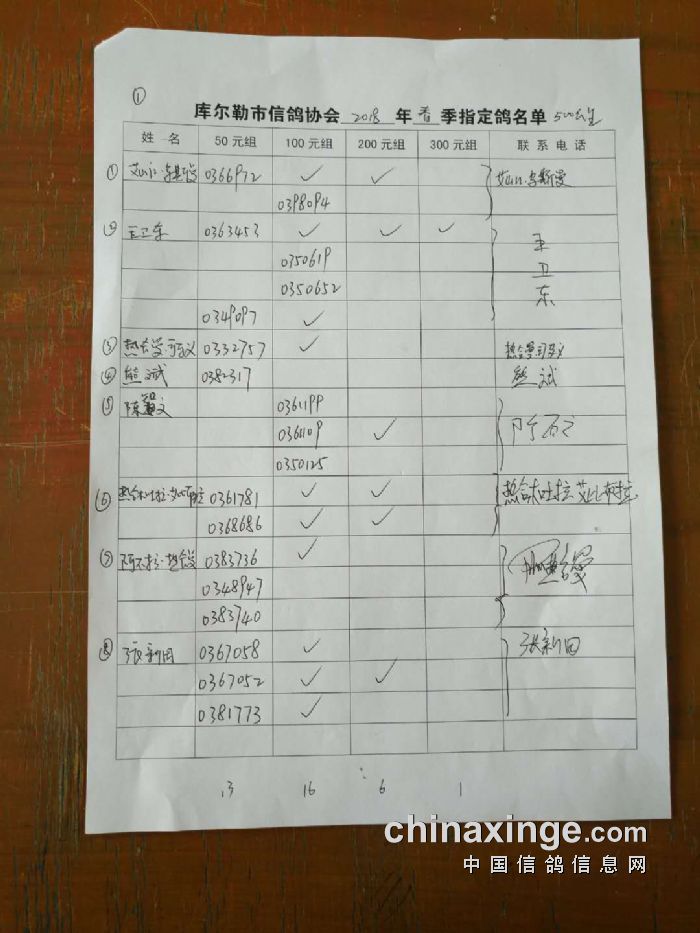 ①
库尔勒市信鸽协会 2018 年 春 季指定鸽名单 500公里
姓 名 50元组 100元组 200元组 300元组 联系电话
① 0366972 ✓ ✓
0398094
② 王卫东 0363453 ✓ ✓ ✓ 王卫东
0350619
0350652
0349097 ✓
③ 0332757 ✓
④ 熊斌 0382317 熊斌
⑤ 陈毅文 0361199
0361109 ✓
0350125
⑥ 0361781 ✓ ✓ 热合木吐拉 艾比布拉
0368686 ✓ ✓
⑦ 0383736 ✓
0348947
0383740
⑧ 张新田 0367058 ✓ 张新田
0367052 ✓ ✓
0381773 ✓
13 16 6 1
chinaxinge.com
中国信鸽信息网